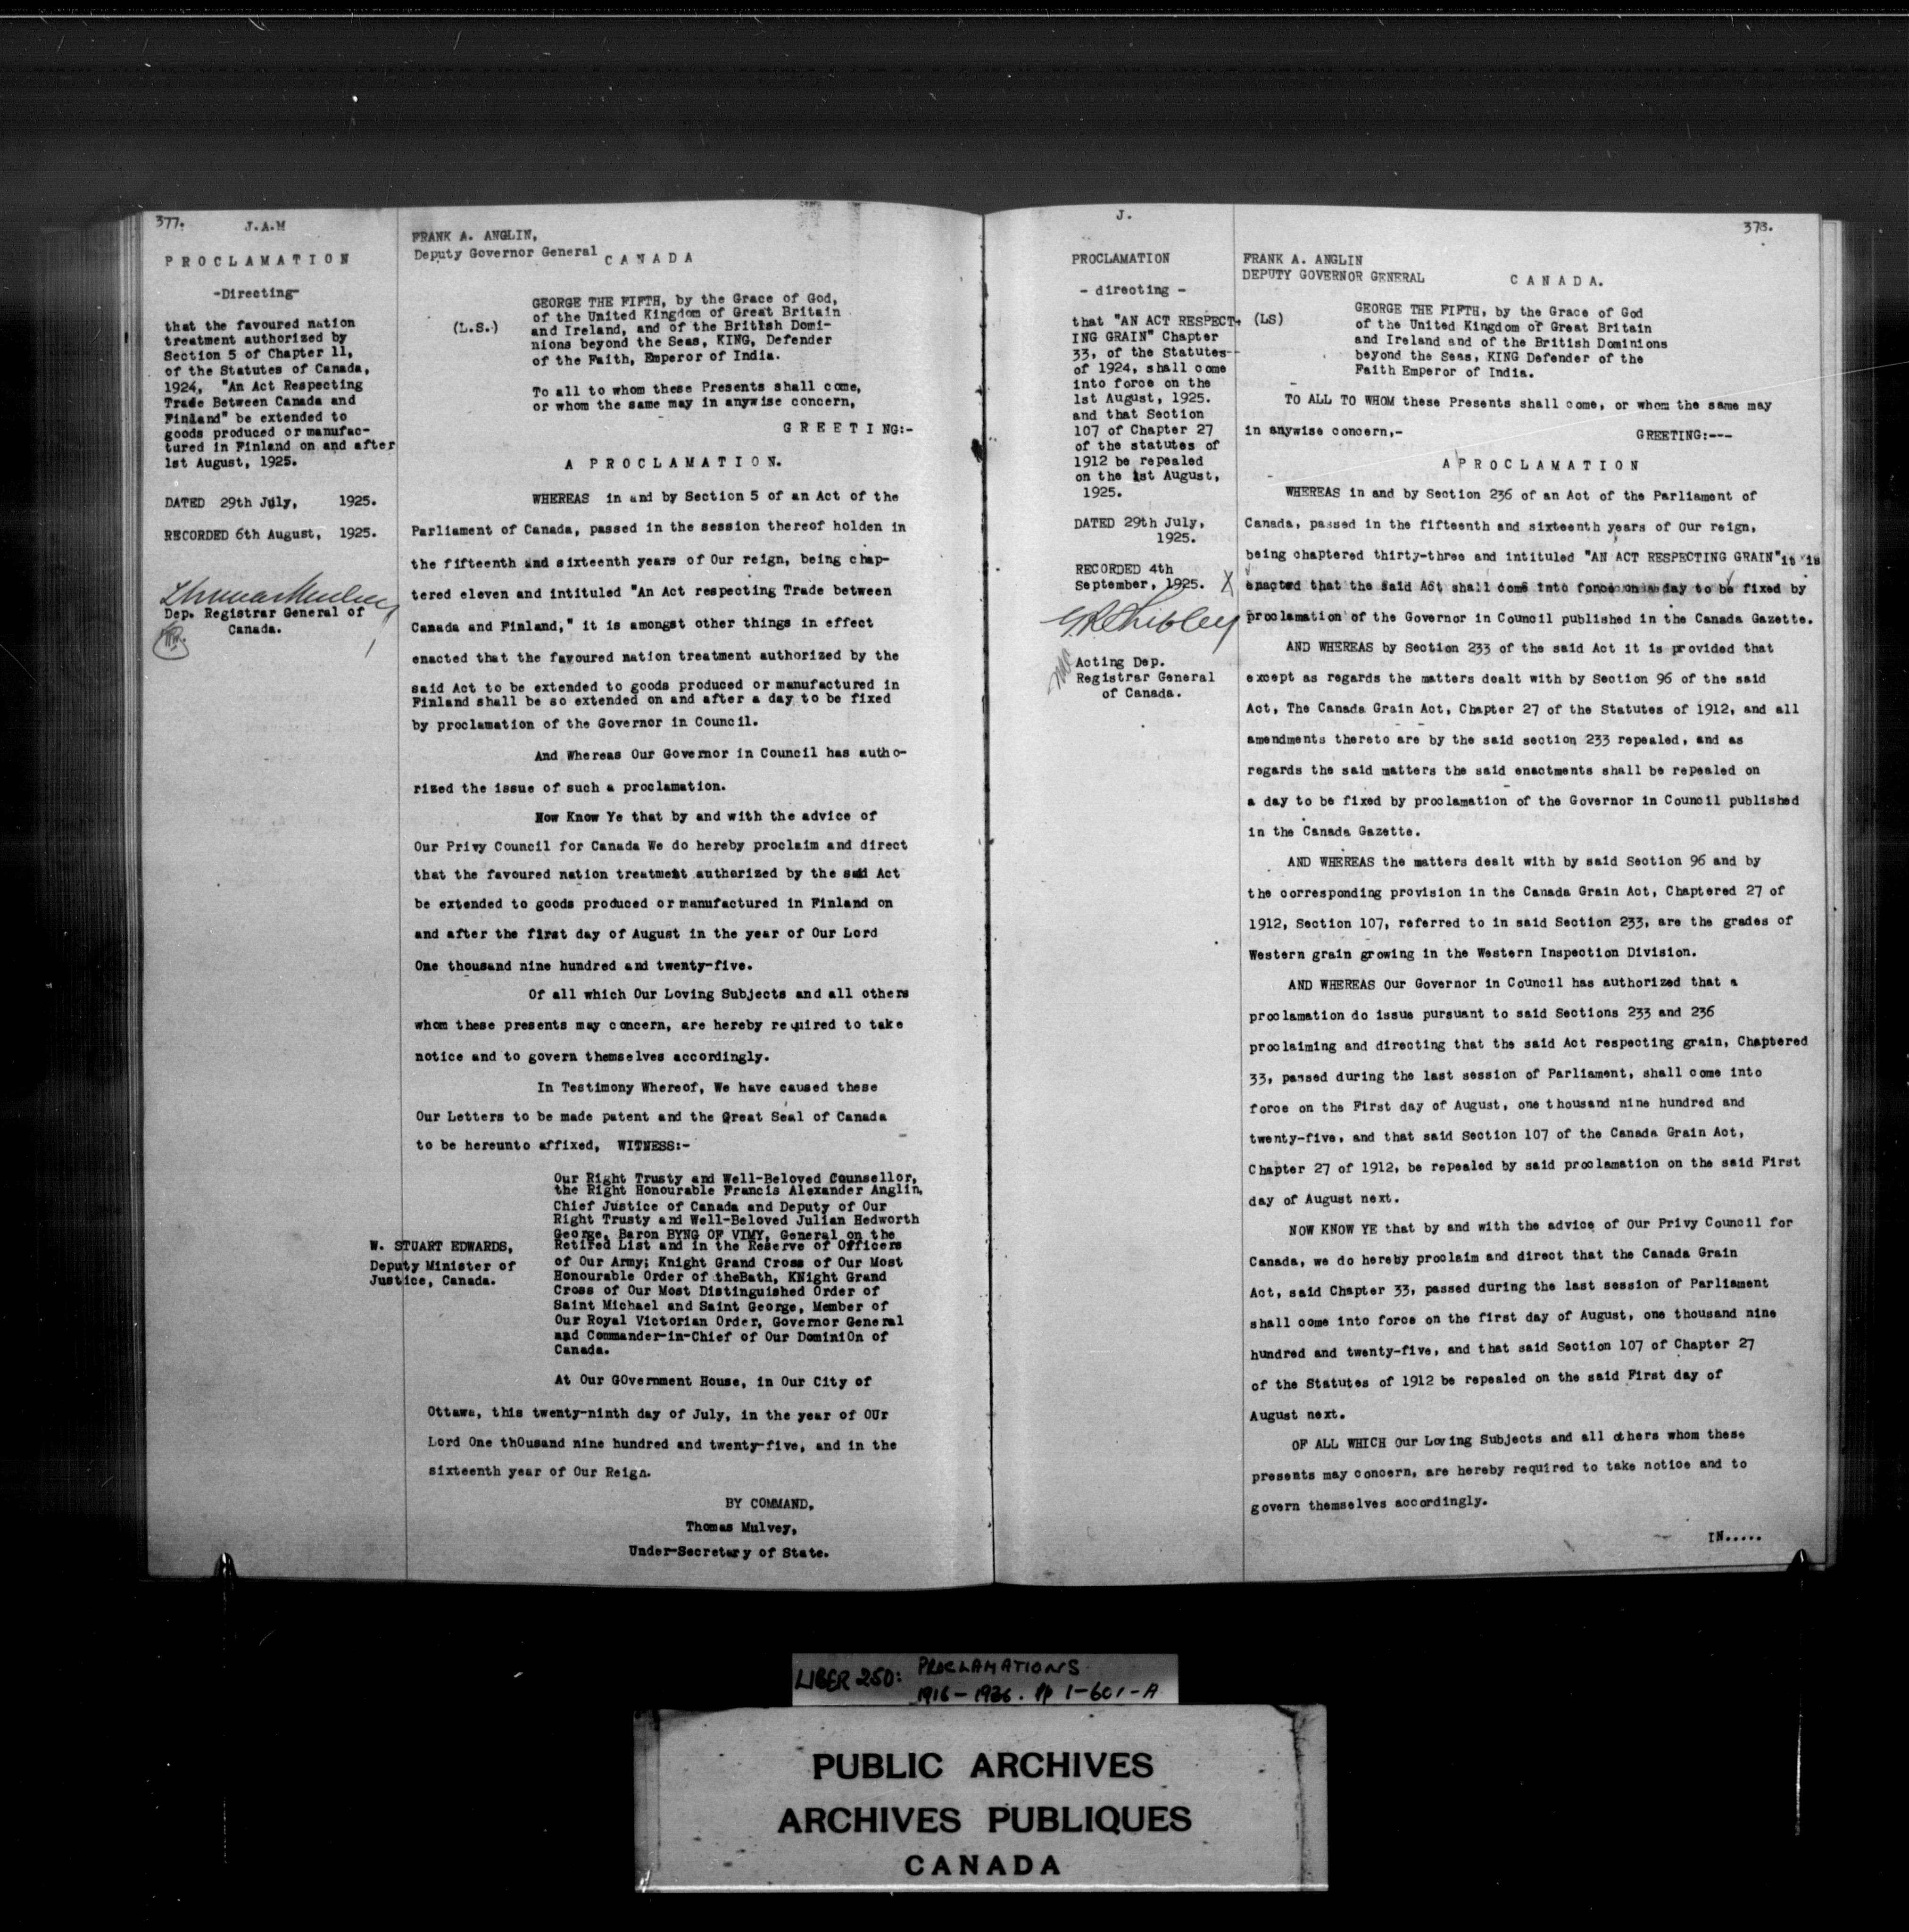 377.
J.A.M
PROCLAMATION
-Directing-
that the favoured nation
treatment authorized by
Section 5 of Chapter 11,
of the Statutes of Canada,
1924, "An Act Respecting
Trade Between Canada and
Finland" be extended to
goods produced or manufac-
tured in Finland on and after
1st August, 1925.
DATED 29th July, 1925.
RECORDED 6th August, 1925.
Dep. Registrar General of
Canada.
FRANK A. ANGLIN,
Deputy Governor General
CANADA
(L.S.)
GEORGE THE FIFTH, by the Grace of God,
of the United Kingdom of Great Britain
and Ireland, and of the British Domi-
nions beyond the Seas, KING, Defender
of the Faith, Emperor of India.
To all to whom these Presents shall come,
or whom the same may in anywise concern,
GREETING:-
A PROCLAMATION.
WHEREAS in and by Section 5 of an Act of the
Parliament of Canada, passed in the session thereof holden in
the fifteenth and sixteenth years of Our reign, being chap-
tered eleven and intituled "An Act respecting Trade between
Canada and Finland," it is amongst other things in effect
enacted that the favoured nation treatment authorized by the
said Act to be extended to goods produced or manufactured in
Finland shall be so extended on and after a day to be fixed
by proclamation of the Governor in Council.
And Whereas Our Governor in Council has autho-
rized the issue of such a proclamation.
Now Know Ye that by and with the advice of
Our Privy Council for Canada We do hereby proclaim and direct
that the favoured nation treatment authorized by the said Act
be extended to goods produced or manufactured in Finland on
and after the first day of August in the year of Our Lord
One thousand nine hundred and twenty-five.
Of all which Our Loving Subjects and all others
whom these presents may concern, are hereby required to take
notice and to govern themselves accordingly.
In Testimony Whereof, We have caused these
Our Letters to be made patent and the Great Seal of Canada
to be hereunto affixed, WITNESS:-
Our Right Trusty and Well-Beloved Counsellor,
the Right Honourable Francis Alexander Anglin,
Chief Justice of Canada and Deputy of Our
Right Trusty and Well-Beloved Julian Hedworth
George, Baron BYNG OF VIMY, General on the
Retired List and in the Reserve of Officers
of Our Army; Knight Grand Cross of Our Most
Honourable Order of theBath, KNight Grand
Cross of Our Most Distinguished Order of
Saint Michael and Saint George, Member of
Our Royal Victorian Order, Governor General
and Commander-in-Chief of Our DominiOn of
Canada.
W. STUART EDWARDS,
Deputy Minister of
Justice, Canada.
At Our GOvernment House, in Our City of
Ottawa, this twenty-ninth day of July, in the year of OUr
Lord One thOusand nine hundred and twenty-five, and in the
sixteenth year of Our Reign.
BY COMMAND,
Thomas Mulvey,
Under-Secretary of State.
J.
378.
PROCLAMATION
- directing -
that "AN ACT RESPECT-
ING GRAIN" Chapter
33, of the Statutes--
of 1924, shall come
into force on the
1st August, 1925.
and that Section
107 of Chapter 27
of the statutes of
1912 be repealed
on the 1st August,
1925.
DATED 29th July,
1925.
RECORDED 4th
September, 1925. X
Acting Dep.
Registrar General
of Canada.
FRANK A. ANGLIN
DEPUTY GOVERNOR GENERAL
CANADA.
(LS)
GEORGE THE FIFTH, by the Grace of God
of the United Kingdom of Great Britain
and Ireland and of the British Dominions
beyond the Seas, KING Defender of the
Faith Emperor of India.
TO ALL TO WHOM these Presents shall come, or whom the same may
in anywise concern,-
GREETING:---
A PROCLAMATION
WHEREAS in and by Section 236 of an Act of the Parliament of
Canada, passed in the fifteenth and sixteenth years of Our reign,
being chaptered thirty-three and intituled "AN ACT RESPECTING GRAIN"it is
enacted that the said Act shall come into force on a day to be fixed by
proclamation of the Governor in Council published in the Canada Gazette.
AND WHEREAS by Section 233 of the said Act it is provided that
except as regards the matters dealt with by Section 96 of the said
Act, The Canada Grain Act, Chapter 27 of the Statutes of 1912, and all
amendments thereto are by the said section 233 repealed, and as
regards the said matters the said enactments shall be repealed on
a day to be fixed by proclamation of the Governor in Council published
in the Canada Gazette.
AND WHEREAS the matters dealt with by said Section 96 and by
the corresponding provision in the Canada Grain Act, Chaptered 27 of
1912, Section 107, referred to in said Section 233, are the grades of
Western grain growing in the Western Inspection Division.
AND WHEREAS Our Governor in Council has authorized that a
proclamation do issue pursuant to said Sections 233 and 236
proclaiming and directing that the said Act respecting grain, Chaptered
33, passed during the last session of Parliament, shall come into
force on the First day of August, one thousand nine hundred and
twenty-five, and that said Section 107 of the Canada Grain Act,
Chapter 27 of 1912, be repealed by said proclamation on the said First
day of August next.
NOW KNOW YE that by and with the advice of Our Privy Council for
Canada, we do hereby proclaim and direct that the Canada Grain
Act, said Chapter 33, passed during the last session of Parliament
shall come into force on the first day of August, one thousand nine
hundred and twenty-five, and that said Section 107 of Chapter 27
of the Statutes of 1912 be repealed on the said First day of
August next.
OF ALL WHICH Our Loving Subjects and all others whom these
presents may concern, are hereby required to take notice and to
govern themselves accordingly.
IN.....
LIBER 250: PROCLAMATIONS
1916-1936. pp 1-601-A
PUBLIC ARCHIVES
ARCHIVES PUBLIQUES
CANADA